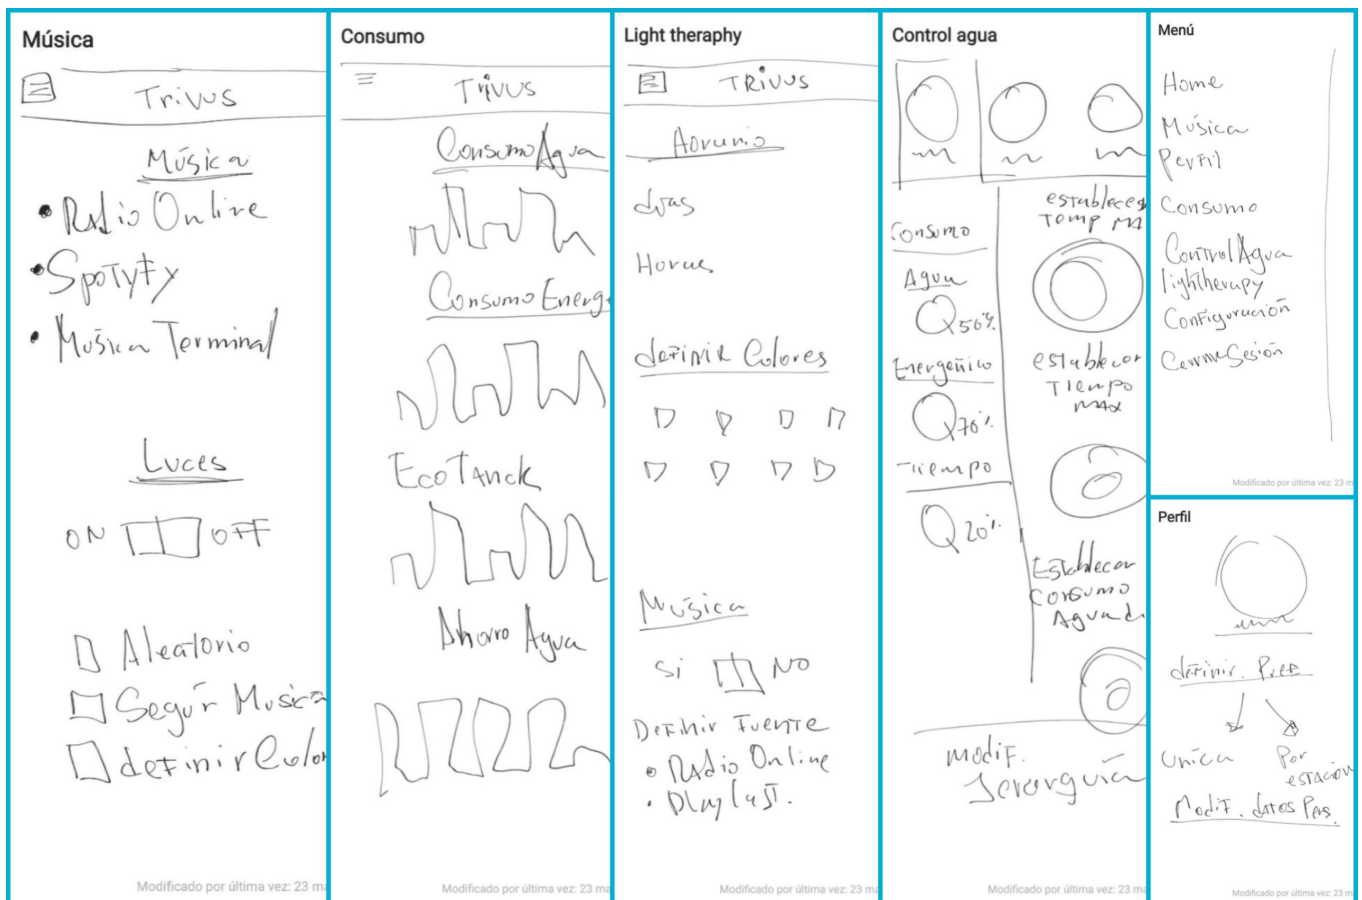 Música
Trivus
Música
• Radio Online
• SpoTyfy
• Música Terminal
Luces
ON OFF
Aleatorio
Según Musica
definir Color
Modificado por última vez: 23 ma
Consumo
Trivus
Consumo Agua
Consumo Energ
Eco Tanck
Ahorro Agua
Modificado por última vez: 23 ma
Light theraphy
TRIVUS
Horario
días
Horas
definir Colores
Música
Si NO
Definir Fuente
• Radio Online
• Playlist.
Modificado por última vez: 23 m
Control agua
Consumo
Agua
56%
Energético
70%
Tiempo
20%
establecer
Temp MA
establecer
Tiempo
MAX
Establecer
Consumo
Agua d
modif.
Jerarquía
Modificado por última vez: 23 ma
Menú
Home
Música
Perfil
Consumo
Control Agua
lightherapy
Configuración
Cerrar Sesión
Modificado por última vez: 23 m
Perfil
definir. Pref
Unica
Por
estación
Modif. datos Pers.
Modificado por última vez: 23 m